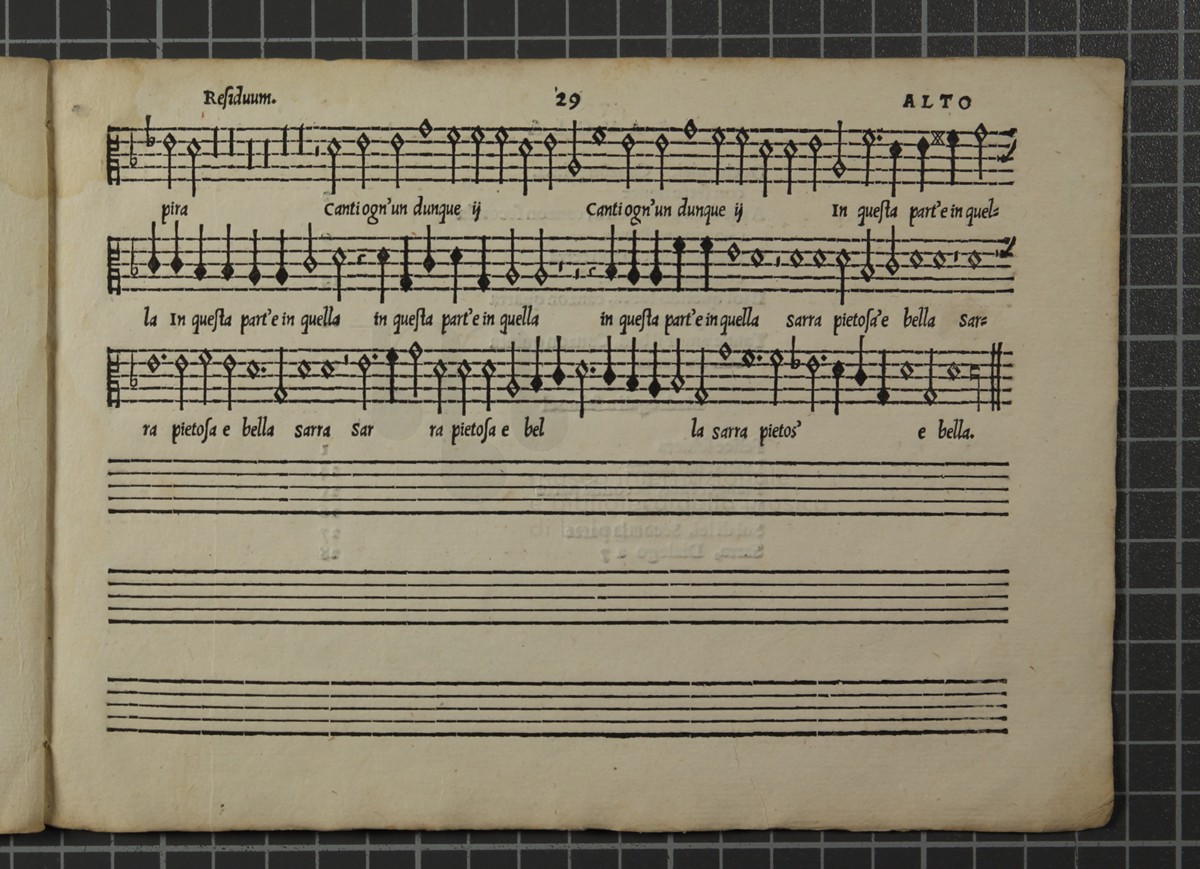 Residuum. 29 ALTO
pira Canti ogn'un dunque ij Canti ogn'un dunque ij In questa part'e in quel=
la In questa part'e in quella in questa part'e in quella in questa part'e in quella sarra pietosa'e bella sar=
ra pietosa e bella sarra sar ra pietosa e bel la sarra pietos' e bella.